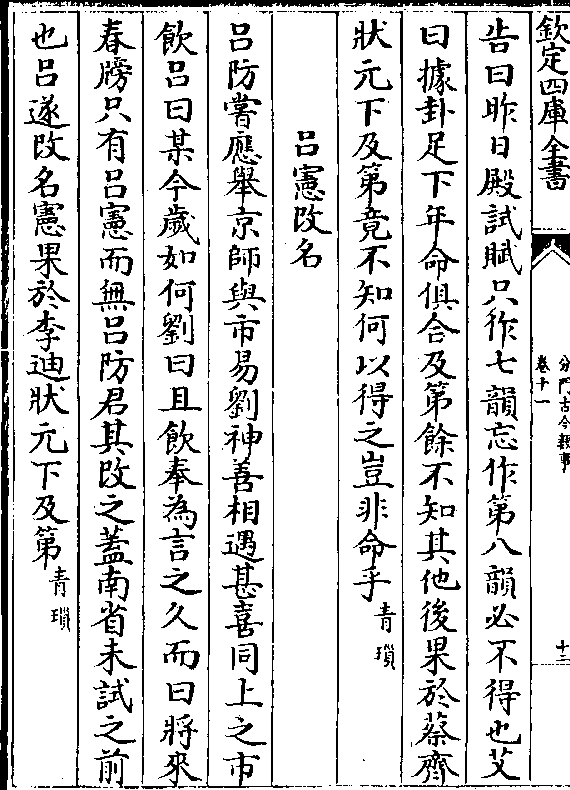 欽定四庫全書
分門古今類事
卷十一
十三
告曰昨日殿試賦只作七韻忘作第八韻必不得也艾
曰據卦足下年命俱合及第餘不知其他後果於蔡齊
狀元下及第竟不知何以得之豈非命乎青瑣
吕憲改名
吕防嘗應舉京師與市易劉神善相遇甚喜同上之市
飲吕曰某今歲如何劉曰且飲奉為言之久而曰將來
春牓只有吕憲而無吕防君其改之蓋南省未試之前
也吕遂改名憲果於李迪狀元下及第青瑣